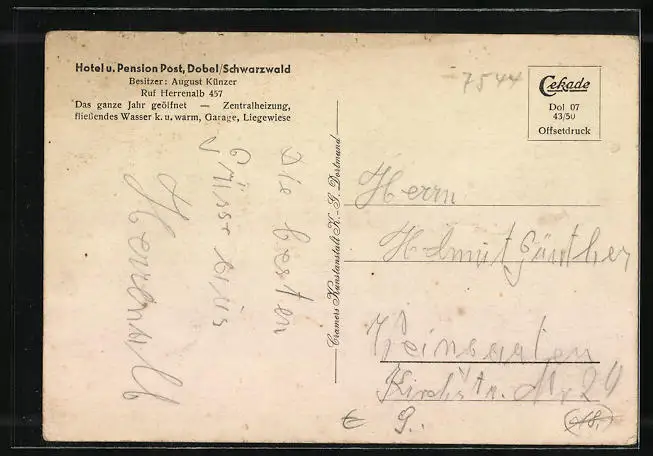 Hotel u. Pension Post, Dobel/Schwarzwald
Besitzer: August Künzer
Ruf Herrenalb 457
Das ganze Jahr geöffnet — Zentralheizung,
fließendes Wasser k. u. warm, Garage, Liegewiese
7544
Cekade
Dol 07
43/50
Offsetdruck
Cramers Kunstanstalt K.-G. Dortmund
Die besten
Grüsse aus
Herrenalb
Herrn
Helmut Günther
Weingarten
Kirchstr. Nr 29